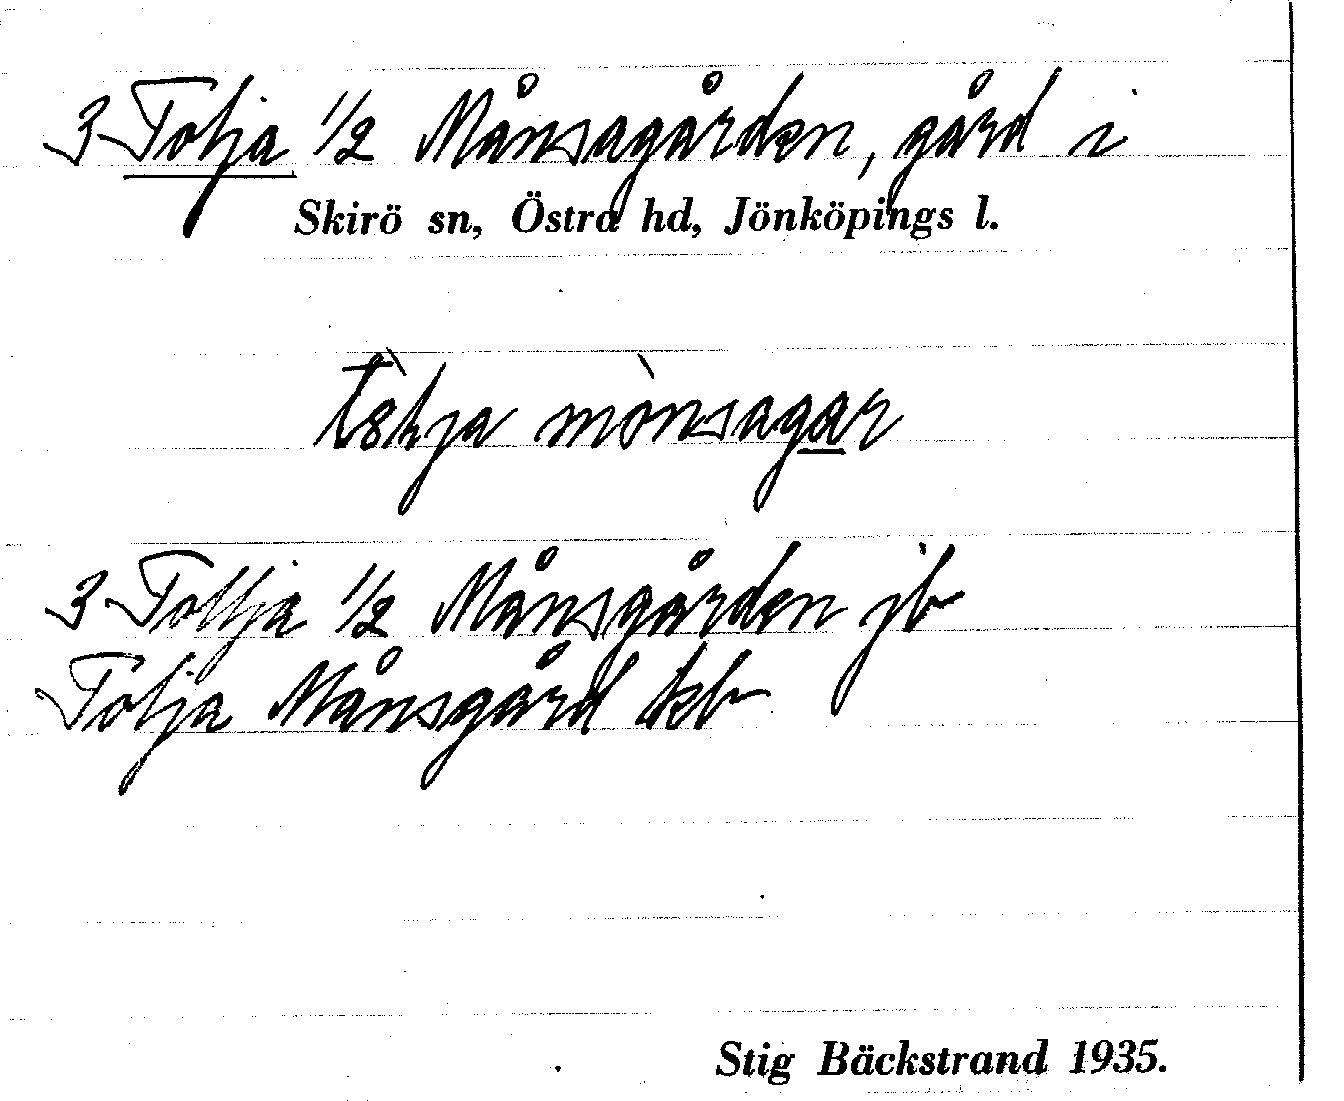 3 Tolja 1/2 Månsagården, gård i
Skirö sn, Östra hd, Jönköpings l.
mònsagar
3 Tollja 1/2 Månsgården jb
Tolja Månsgård kb
Stig Bäckstrand 1935.